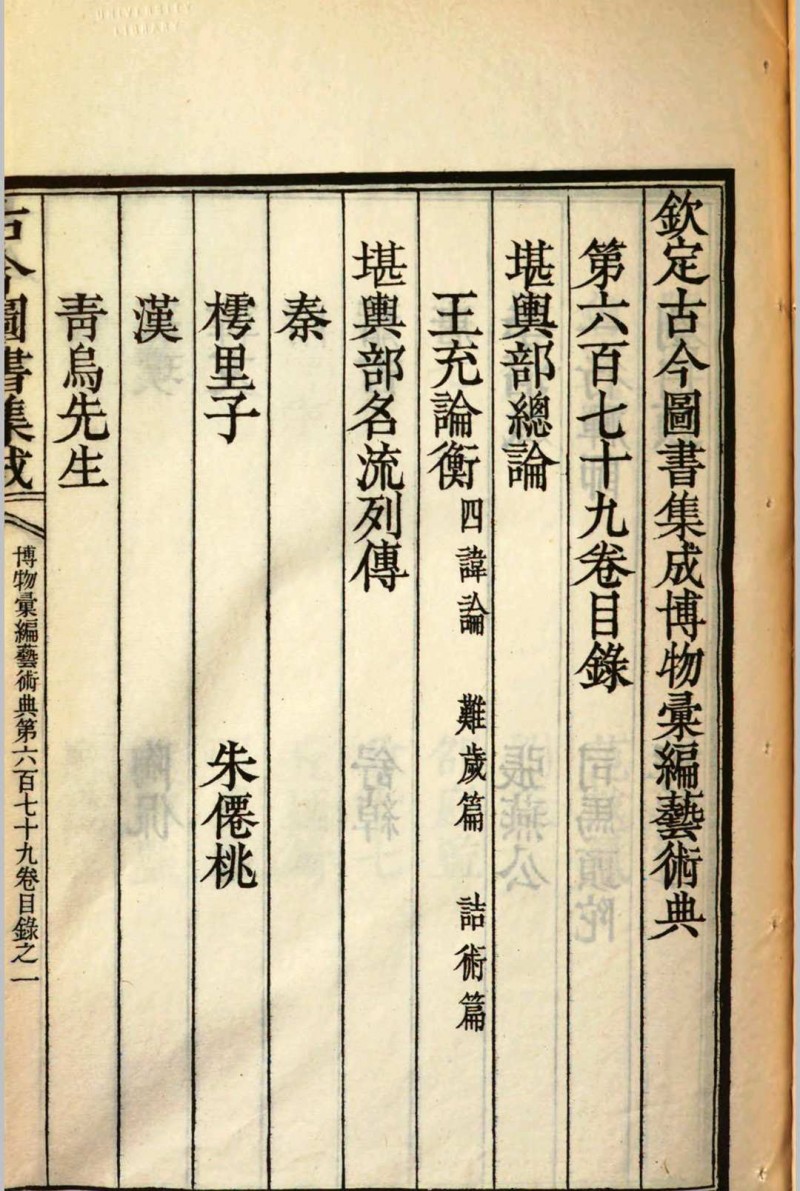 欽定古今圖書集成博物彙編藝術典
第六百七十九卷目錄
堪輿部總論
王充論衡 四諱論 難歲篇 詰術篇
堪輿部名流列傳
秦
樗里子 朱僊桃
漢
青烏先生
古今圖書集成 博物彙編藝術典第六百七十九卷目錄之一
UNIVERSITY
LIBRARY